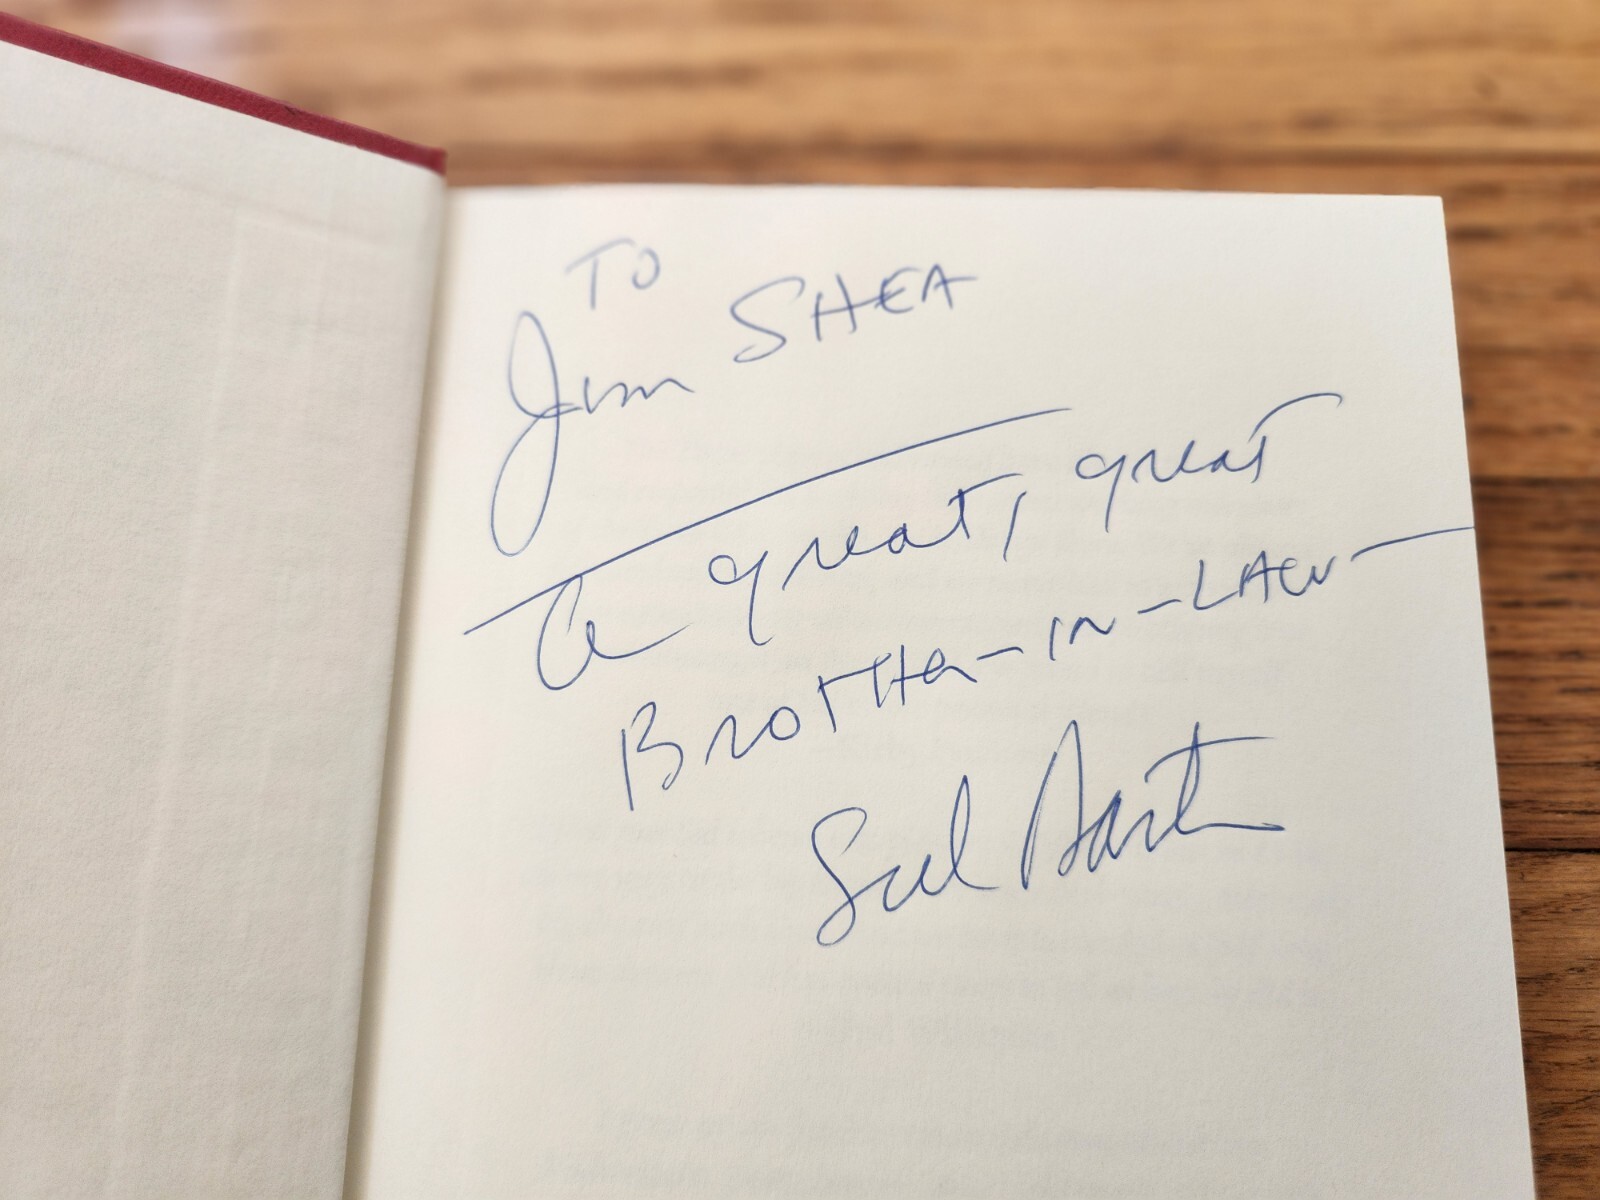 TO
Jim SHEA
a great, great
BROTHER-IN-LAW